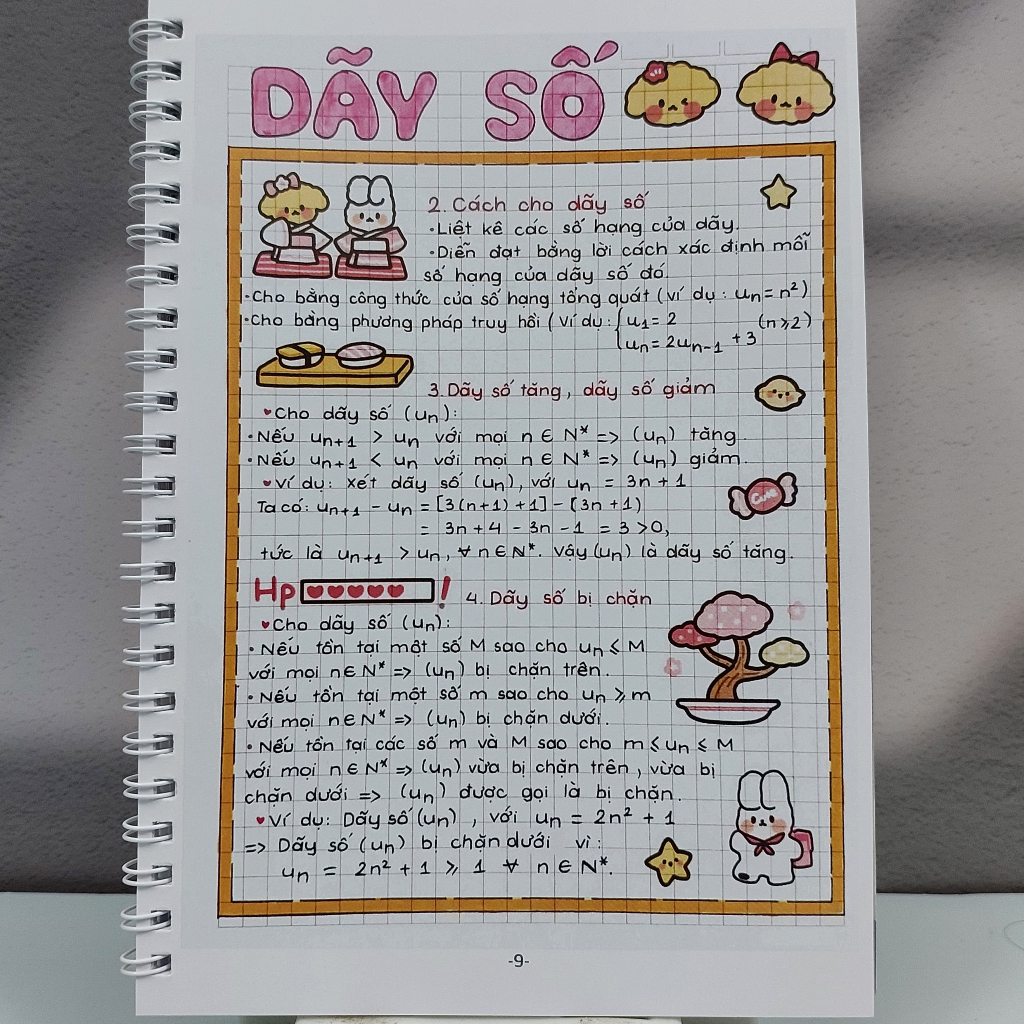 DÃY SỐ
2. Cách cho dãy số
• Liệt kê các số hạng của dãy.
• Diễn đạt bằng lời cách xác định mỗi
số hạng của dãy số đó.
• Cho bằng công thức của số hạng tổng quát (ví dụ: uₙ = n²)
• Cho bằng phương pháp truy hồi (Ví dụ: { u₁ = 2 (n ⩾ 2)
uₙ = 2uₙ₋₁ + 3
3. Dãy số tăng, dãy số giảm
♥ Cho dãy số (uₙ):
• Nếu uₙ₊₁ > uₙ với mọi n ∈ N* => (uₙ) tăng
• Nếu uₙ₊₁ < uₙ với mọi n ∈ N* => (uₙ) giảm.
♥ Ví dụ: xét dãy số (uₙ), với uₙ = 3n + 1
Ta có: uₙ₊₁ - uₙ = [3(n+1) + 1] - (3n + 1)
= 3n + 4 - 3n - 1 = 3 > 0,
tức là uₙ₊₁ > uₙ, ∀ n ∈ N*. Vậy (uₙ) là dãy số tăng.
Hp ♥♥♥♥♥ !
4. Dãy số bị chặn
♥ Cho dãy số (uₙ):
• Nếu tồn tại một số M sao cho uₙ ⩽ M
với mọi n ∈ N* => (uₙ) bị chặn trên.
• Nếu tồn tại một số m sao cho uₙ ⩾ m
với mọi n ∈ N* => (uₙ) bị chặn dưới.
• Nếu tồn tại các số m và M sao cho m ⩽ uₙ ⩽ M
với mọi n ∈ N* => (uₙ) vừa bị chặn trên, vừa bị
chặn dưới => (uₙ) được gọi là bị chặn.
♥ Ví dụ: Dãy số (uₙ), với uₙ = 2n² + 1
=> Dãy số (uₙ) bị chặn dưới vì:
uₙ = 2n² + 1 ⩾ 1 ∀ n ∈ N*.
-9-